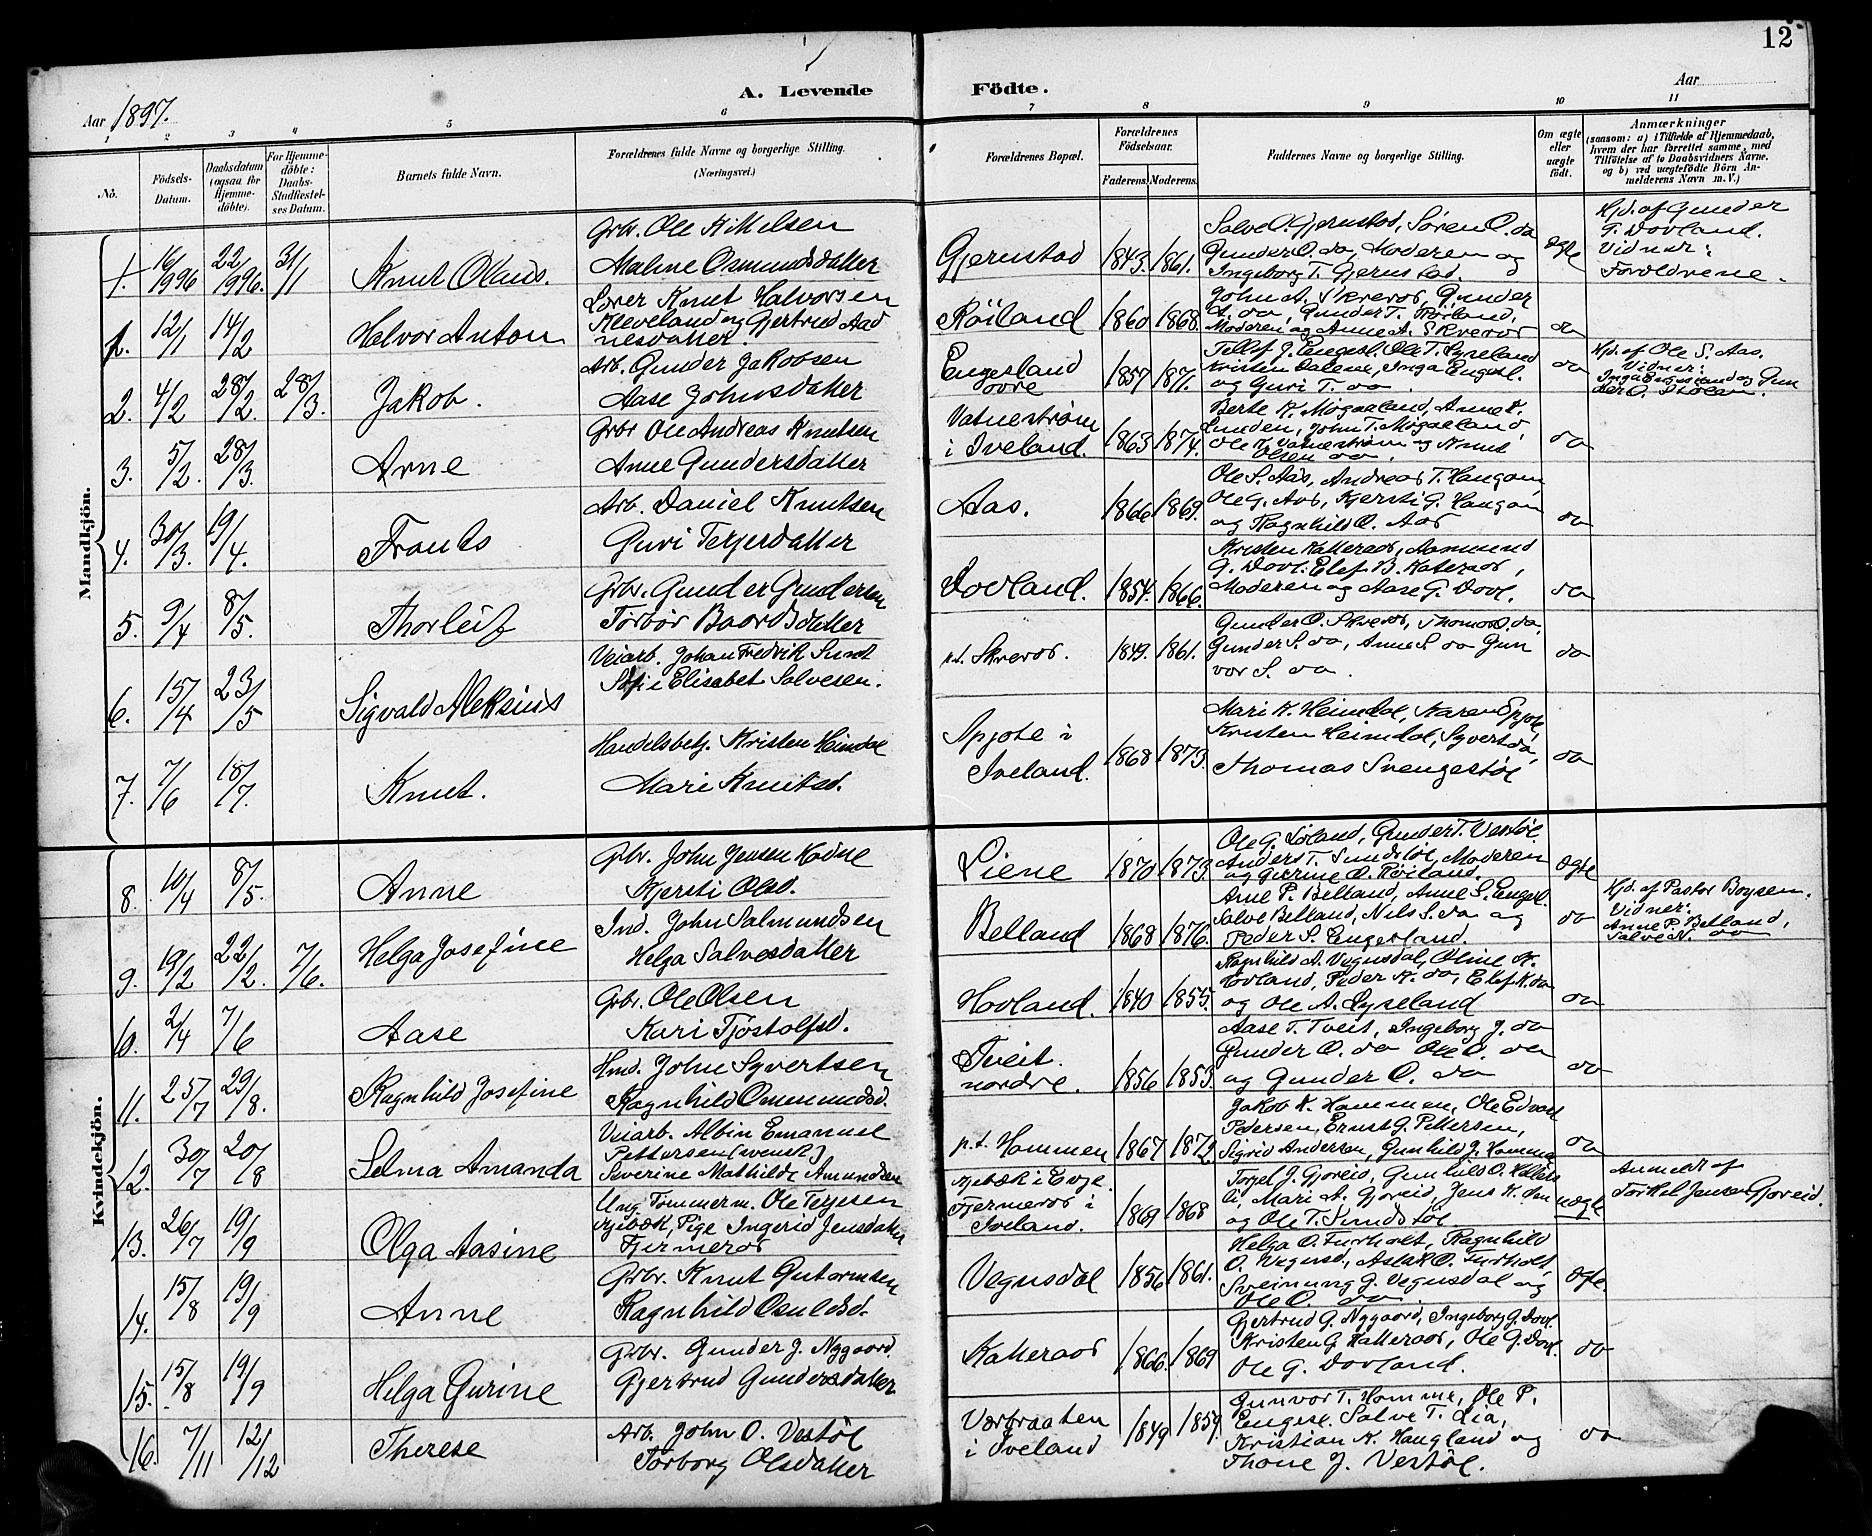 12
Aar 1897.
A. Levende Födte.
Aar
1 2 3 4 5 6 7 8 9 10 11
No.
Födsels-Datum.
Daabsdatum (ogsaa for Hjemme-döbte).
For Hjemme-döbte: Daabs-Stadfæstel-ses Datum.
Barnets fulde Navn.
Forældrenes fulde Navne og borgerlige Stilling. (Næringsvei.)
Forældrenes Bopæl.
Forældrenes Födselsaar.
Faderens. Moderens.
Faddernes Navne og borgerlige Stilling.
Om ægte eller uægte födt.
Anmærkninger
(saasom: a) i Tilfælde af Hjemmedaab, hvem der har forrettet samme, med Tilföielse af to Daabsvidners Navne, og b) ved uægtefödte Börn An-melderens Navn m. V.)
Mandkjön.
1. 16/1 1896 22/1 1896. 31/1 Knut Olaus.
Grbr. Ole K. Nilsen
Maline Osmundsdatter
Gjerustad 1843. 1861.
Salve O. Gjerustad, Sören O. do
Gunder O. do, Moderen og
Ingeborg T. Gjerustad.
ægte
Hjd. af Gunder
T. Dovland.
Vidner:
Forældrene.
1. 12/1 14/2 Halvor Anton
Lærer Knut Halvorsen
Kleveland og Gjertrud Aad
nesdatter.
Röiland 1860 1868.
John A. Skreros, Gunder
A. do, Gunder T. Röiland,
Moderen og Anne A. Skreros
do
2. 4/2 28/2. 28/3. Jakob.
Arb. Gunder Jakobsen
Aase Johnsdatter
Engesland
övre 1857 1871.
Tellef J. Engesl. Ole T. Lyseland
Kristen Dalene, Inga Engesl.
og Guri T. do.
do
Hjd. af Ole S. Aas.
Vidner:
Inga Engesland og Gun
der O. Stölen.
3. 5/2. 28/3. Arne
Grbr Ole Andreas Knutsen
Anne Gundersdatter
Vatneström
i Iveland. 1863 1874.
Berte K. Mogaaland, Anne K.
Lunden, John T. Mogaaland,
Ole K. Vatneström og Knut
Olsen do.
do
4. 30/3. 19/4. Frants
Arb. Daniel Knutsen
Guri Terjerdatter
Aas. 1866 1869.
Ole S. Aas, Andreas T. Haugom,
Ole G. Aas, Kjersti G. Haugom
og Ragnhild O. Aas
do
5. 9/4 8/5. Thorleif
Grbr. Gunder Gundersen
Torbör Baardsdatter
Dovland. 1854. 1866.
Kristen Katteraas, Aanmund
G. Dovl. Elef B. Kateraas,
Moderen og Aase G. Dovl.
do
6. 15/4 23/5 Sigvald Aleksius
Veiarb. Johan Fredrik Sund
Sofie Elisabet Salvesen.
p.t. Skreros. 1849. 1861.
Gunder O. Skreros, Thomas O. do,
Gunder S. do, Anne S. do Gun
vor S. do.
do
7. 7/6 18/7. Knut.
Handelsbetj. Kristen Heimdal
Mari Knutsd.
Spjote i
Iveland. 1868 1873.
Mari K. Heimdal, Karen Spjote,
Kristen Heimdal, Syvert do,
Thomas Svengestöl
do
Kvindekjön.
8. 10/4 8/5. Anne
Grbr. John Jensen Kadne
Kjersti Olsd.
Liene 1870 1873.
Ole G. Löland, Gunder T. Vestöl.
Anders T. Sundstöl, Moderen
og Gurine O. Röiland.
ægte
9. 19/2 22/2. 7/6. Helga Josefine
Ind. John Salmundsen
Helga Salvesdatter
Belland 1868 1876.
Arne P. Belland, Anne S. Engesl.
Salve Belland, Nils S. do og
Peder S. Engesland.
do
Hjd. af Pastor Boysen.
Vidner:
Anne P. Belland,
Salve N. do
10. 2/4 7/6 Aase
Grbr. Ole Olsen
Kari Tjöstolfsd.
Hovland. 1840 1855.
Ragnhild A. Vegusdal, Oline K.
Hovland, Peder K. do, Elef K. do
og Ole A. Lyseland
do
11. 25/7 29/8. Ragnhild Josefine
Hmd. John Syvertsen
Ragnhild Ommundsd.
Tveit
nordre. 1856 1853.
Aase T. Tveit, Ingeborg J. do
Gunder O. do Ole O. do
og Gunder O. do
do
12. 30/7 20/8 Selma Amanda
Veiarb. Albin Emanuel
Pettersen (svensk)
Severine Mathilde Amundsen
p.t. Hommen 1867 1872.
Jakob K. Hommen, Ole Edvard
Pedersen, Ernst G. Pettersen,
Sigrid Andersen, Gunhild J. Homme
do
13. 26/7 19/9 Olga Aasine
Ung. Tömmerm. Ole Terjesen
Kjebæk, Pige Ingerid Jensdatter
Fjermeros
Kjebæk i Evje.
Fjermeros i
Iveland. 1869 1868
Torjel J. Gjoreid, Gunhild O. Hatles
li, Mari A. Gjoreid, Jens K. do
og Ole T. Sundstöl
uægte
Anmeldt af
Torkel Jensen Gjoreid.
14. 15/8 19/9 Anne
Grbr. Knut Gutormsen
Ragnhild Osuldsd.
Vegusdal 1856 1861.
Helga O. Furholt, Ragnhild
O. Vegusd, Aslak O. Furholt,
Sveinung G. Vegusdal og
Ole O. do.
ægte.
15. 15/8 19/9 Helga Gurine
Grbr. Gunder J. Nygaard
Gjertrud Gundersdatter
Katteraas 1866. 1869
Gjertrud G. Nygaard, Ingeborg G. Dovl.
Kristen G. Katteraas, Ole G. Dovl.
Ole G. Dovland.
do
16. 7/11 12/12 Therese
Arb. John O. Vestöl
Torborg Olsdatter
Værbraaten
i Iveland 1849 1859.
Gunvor T. Homme, Ole P.
Engesl. Salve T. Lia,
Kristian K. Haugland og
Thone J. Vestöl.
do